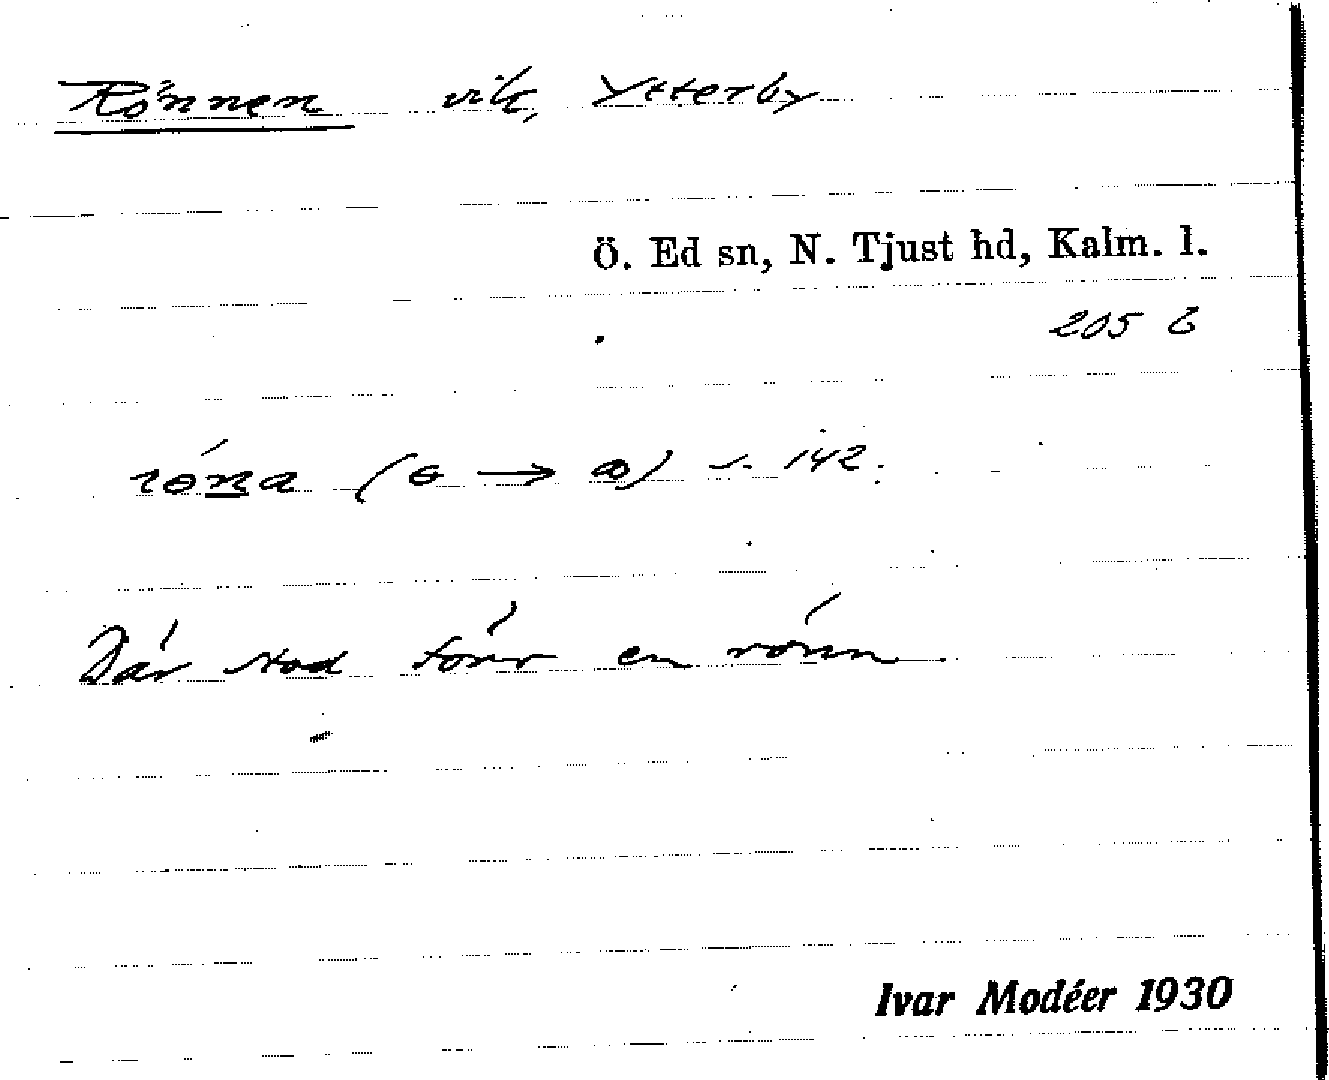 Rönnen vik, Ytterby
Ö. Ed sn, N. Tjust hd, Kalm. l.
205 b
s. 142.
Där stod förr en rönn.
Ivar Modéer 1930